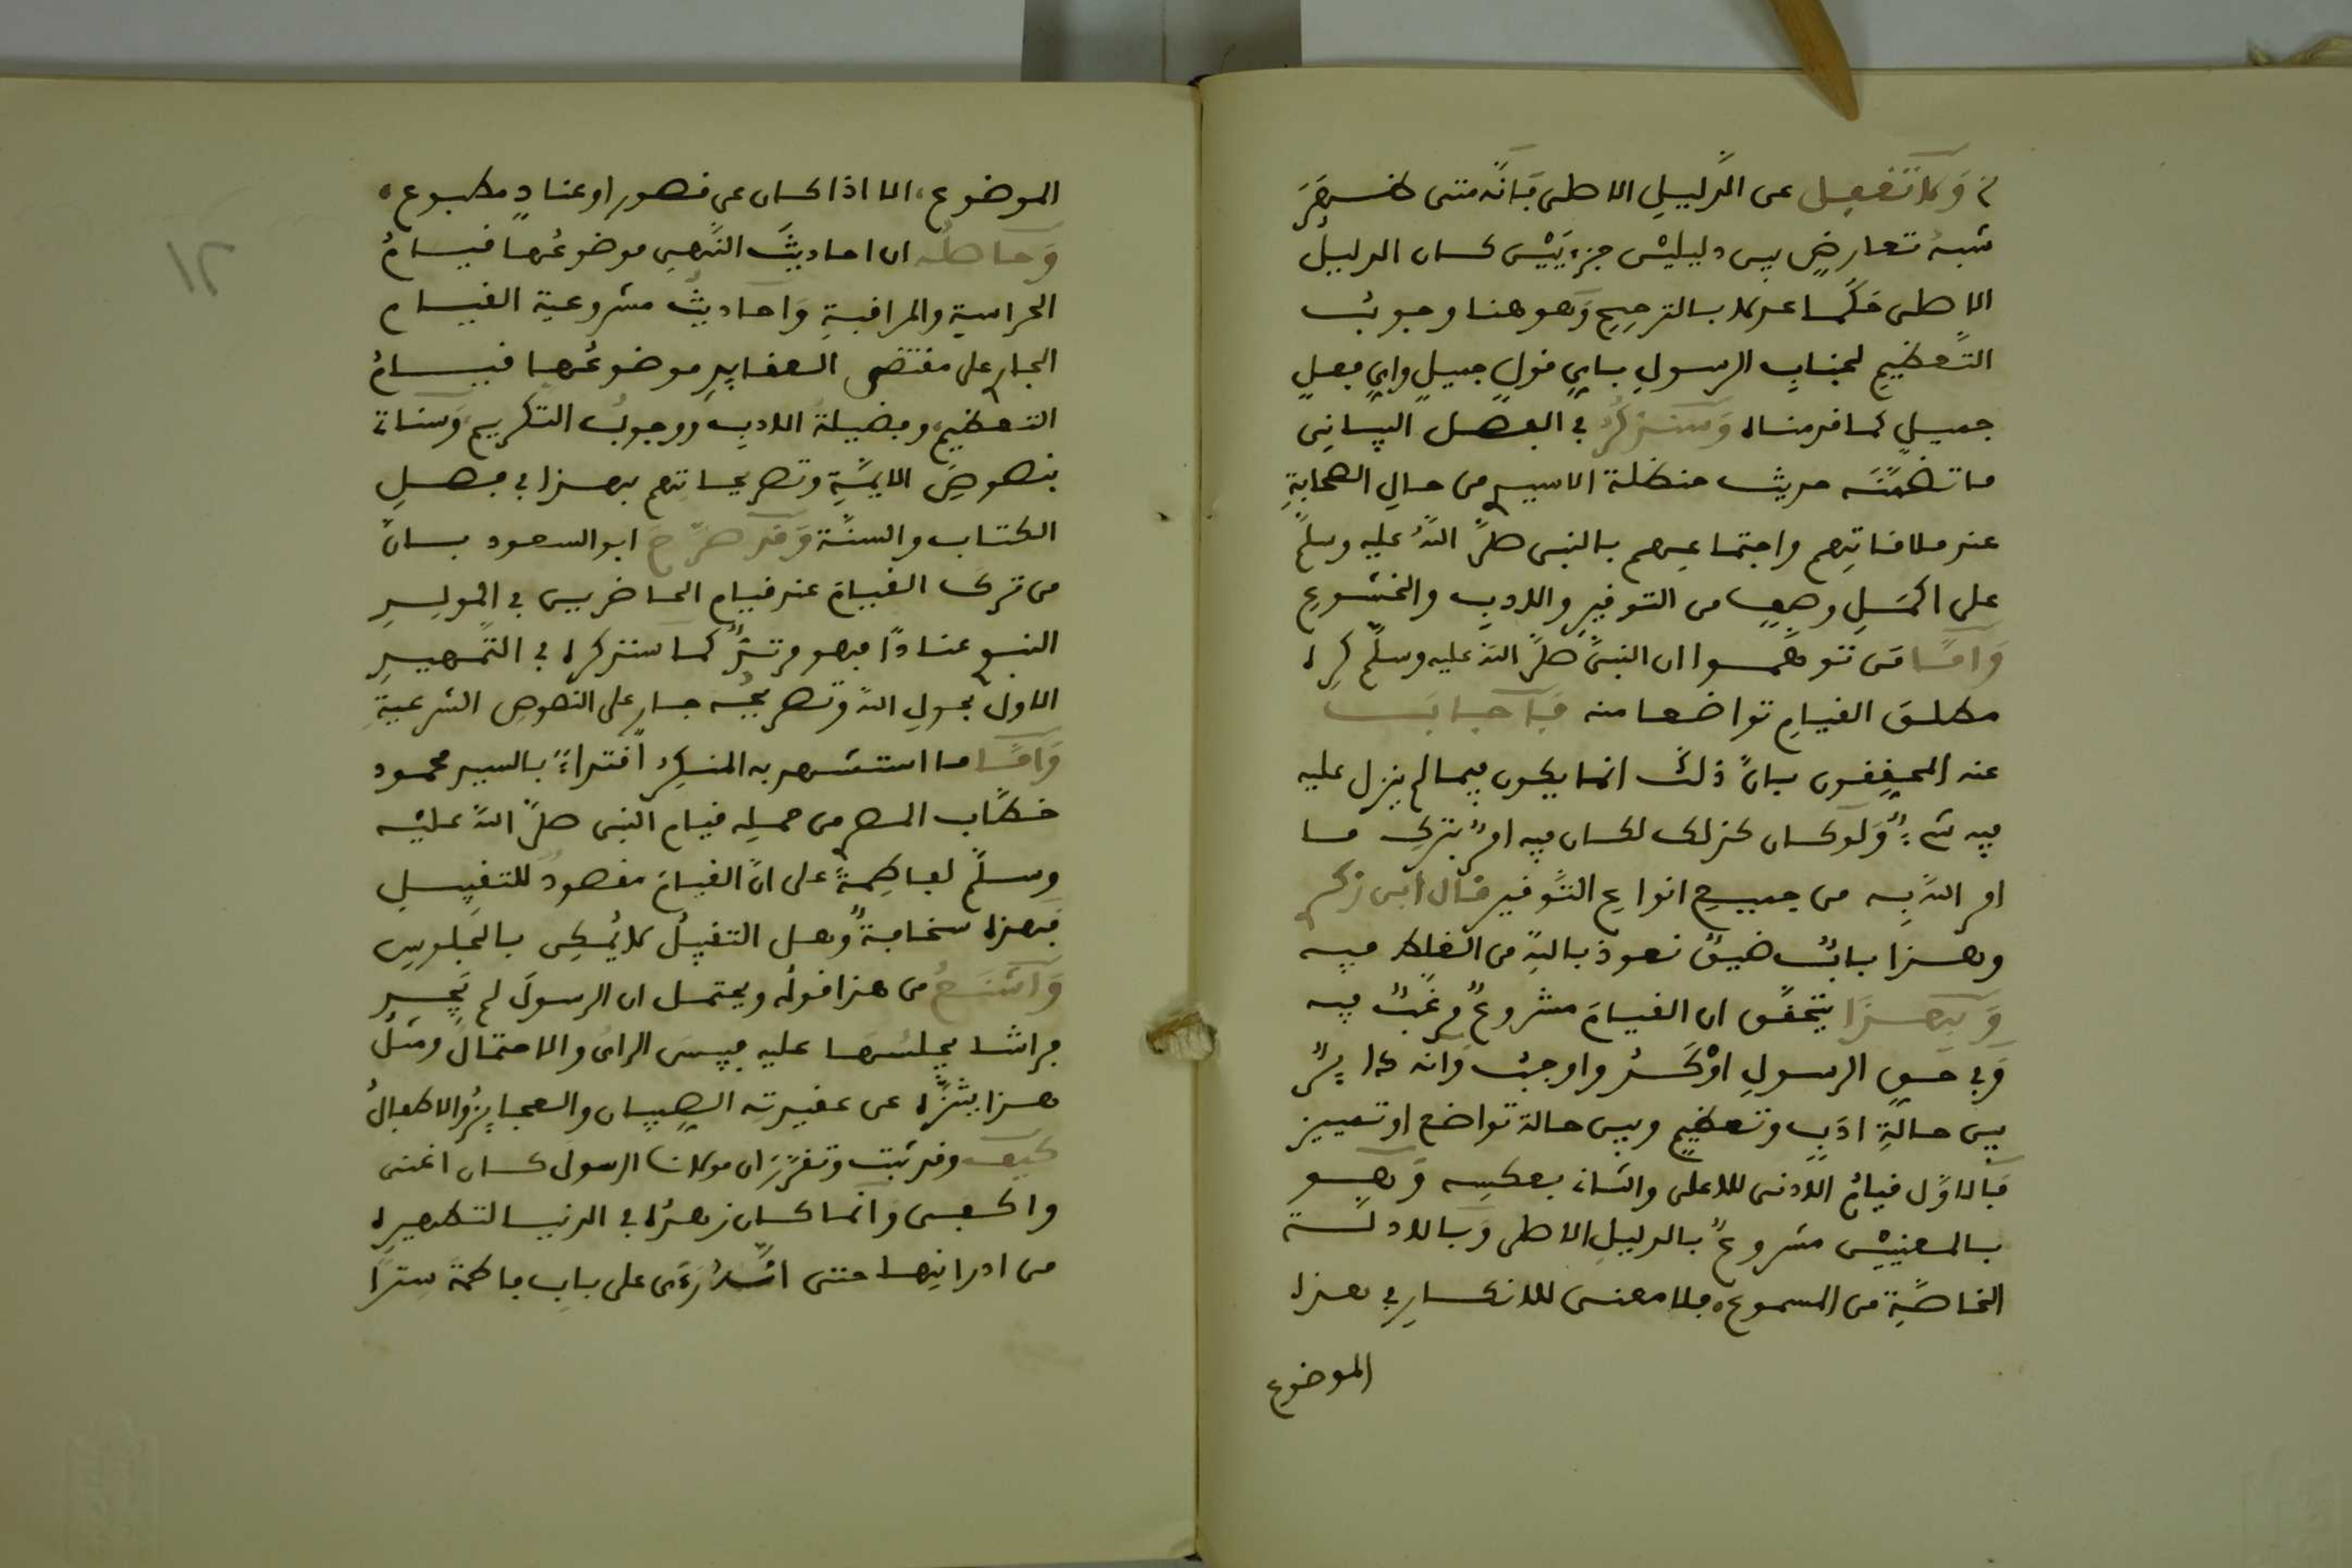 وَلا تغفل عن الدَّليلِ الاصلى فَإنَّه متى ظهرَ
شبهُ تعارضٍ بين دليليْن جزءيَيْن كان الدليلُ
الاصلى حَكَما عدلا بالترجيح وَهو هنا وجوبُ
التَّعظيمِ لجنابِ الرسولِ بايِ قولٍ جميلٍ وايِ فعلٍ
جميلٍ كما قدمناه وَسنذكرُ في الفصل الثانِى
ما تضمَّنَه حديث حنظلة الاسيدى من حالِ الصحابةِ
عند ملاقاتِهم واجتماعِهم بالنبى صلَّى اللهُ عليه وسلَّم
على اكمَلِ وصفٍ من التوقيرِ والادبِ والخشوعِ
وَأمَّا مَن توهَّموا ان النبىَّ صلَّى اللهُ عليه وسلَّم كرِه
مطلقَ القيامِ تواضعا منه فأجابَ
عنه المحققون بانَّ ذلك انما يكون فيما لم ينزل عليه
فيه شىءٌ وَلو كان كذلك لكان فيه امرٌ بتركِ ما
امر اللهُ به من جميعِ انواعِ التَّوقير قال ابن زكرى
وهذا بابٌ ضيقٌ نعوذ باللهِ من الغلط فيه
وَبِهذا يتحقَّق ان القيامَ مشروعٌ مرغَّبٌ فيه
وَفي حقِ الرسولِ اوْكَدُ واوجبُ وَانه لا بدَّ
بين حالةِ ادَبٍ وتعظيمٍ وبين حالة تواضع او تمييز
فَالاوَّل قيامُ الادنى للاعلى والثانِى بعكسِه وَهو
بالمعنييْن مشروعٌ بالدليلِ الاصلى وَبالادلَّة
الخاصَّةِ من المسموع، فلا معنى للانكارِ في هذا
الموضوع
الموضوع، الا اذا كان عن قصور او عنادٍ مطبوع،
وَحاصلُه ان احاديثَ النَّهىِ موضوعُها قيامُ
الحراسةِ والمراقبةِ وَاحاديثُ مشروعية القيام
الجارى على مقتضى العقايدِ موضوعُها قيامُ
التعظيم، وفضيلةُ الادبِ ووجوبُ التكريم، وَسناتى
بنصوصِ الايمَّةِ وتصريحاتهم بهذا في فصلِ
الكتاب والسنَّة وَقد صرَّح ابو السعود بانَّ
من ترك القيامَ عند قيامِ الحاضرين في المولِدِ
النبوى عنادًا فهو مرتدٌّ كما سنذكره في التَّمهيدِ
الاول بحولِ اللهِ وتصريحُه جارٍ على النصوصِ الشرعيةِ
وَأمَّا ما استشهد به المنكِر افتراءً بالسيد محمود
خطَّاب المصرى من حملِه قيامَ النبى صلَّى اللهُ عليْه
وسلَّم لفاطِمةَ على انَّ القيامَ مقصودٌ للتقبيلِ
فهذه سخافةٌ وهل التقبيلُ لا يُمكِن بالجُلوسِ
وَأشنَعُ من هذا قولُه ويحتمل ان الرسولَ لم يَجِد
فراشا يجلسُها عليه فبيسَ الراىُ والاحتمالُ ومثلُ
هذا ينزَّه عن عقيدته الصِبيان والعجايزُ والاطفالُ
كيف وقد ثبت وتقرَّرَ ان مولانا الرسولَ كان اغنى
واكفى وَانما كان زهدُه في الدنيا لتطهيرِه
من ادرانِها حتى انَّه رَءَى على بابِ فاطمةَ سِترًا